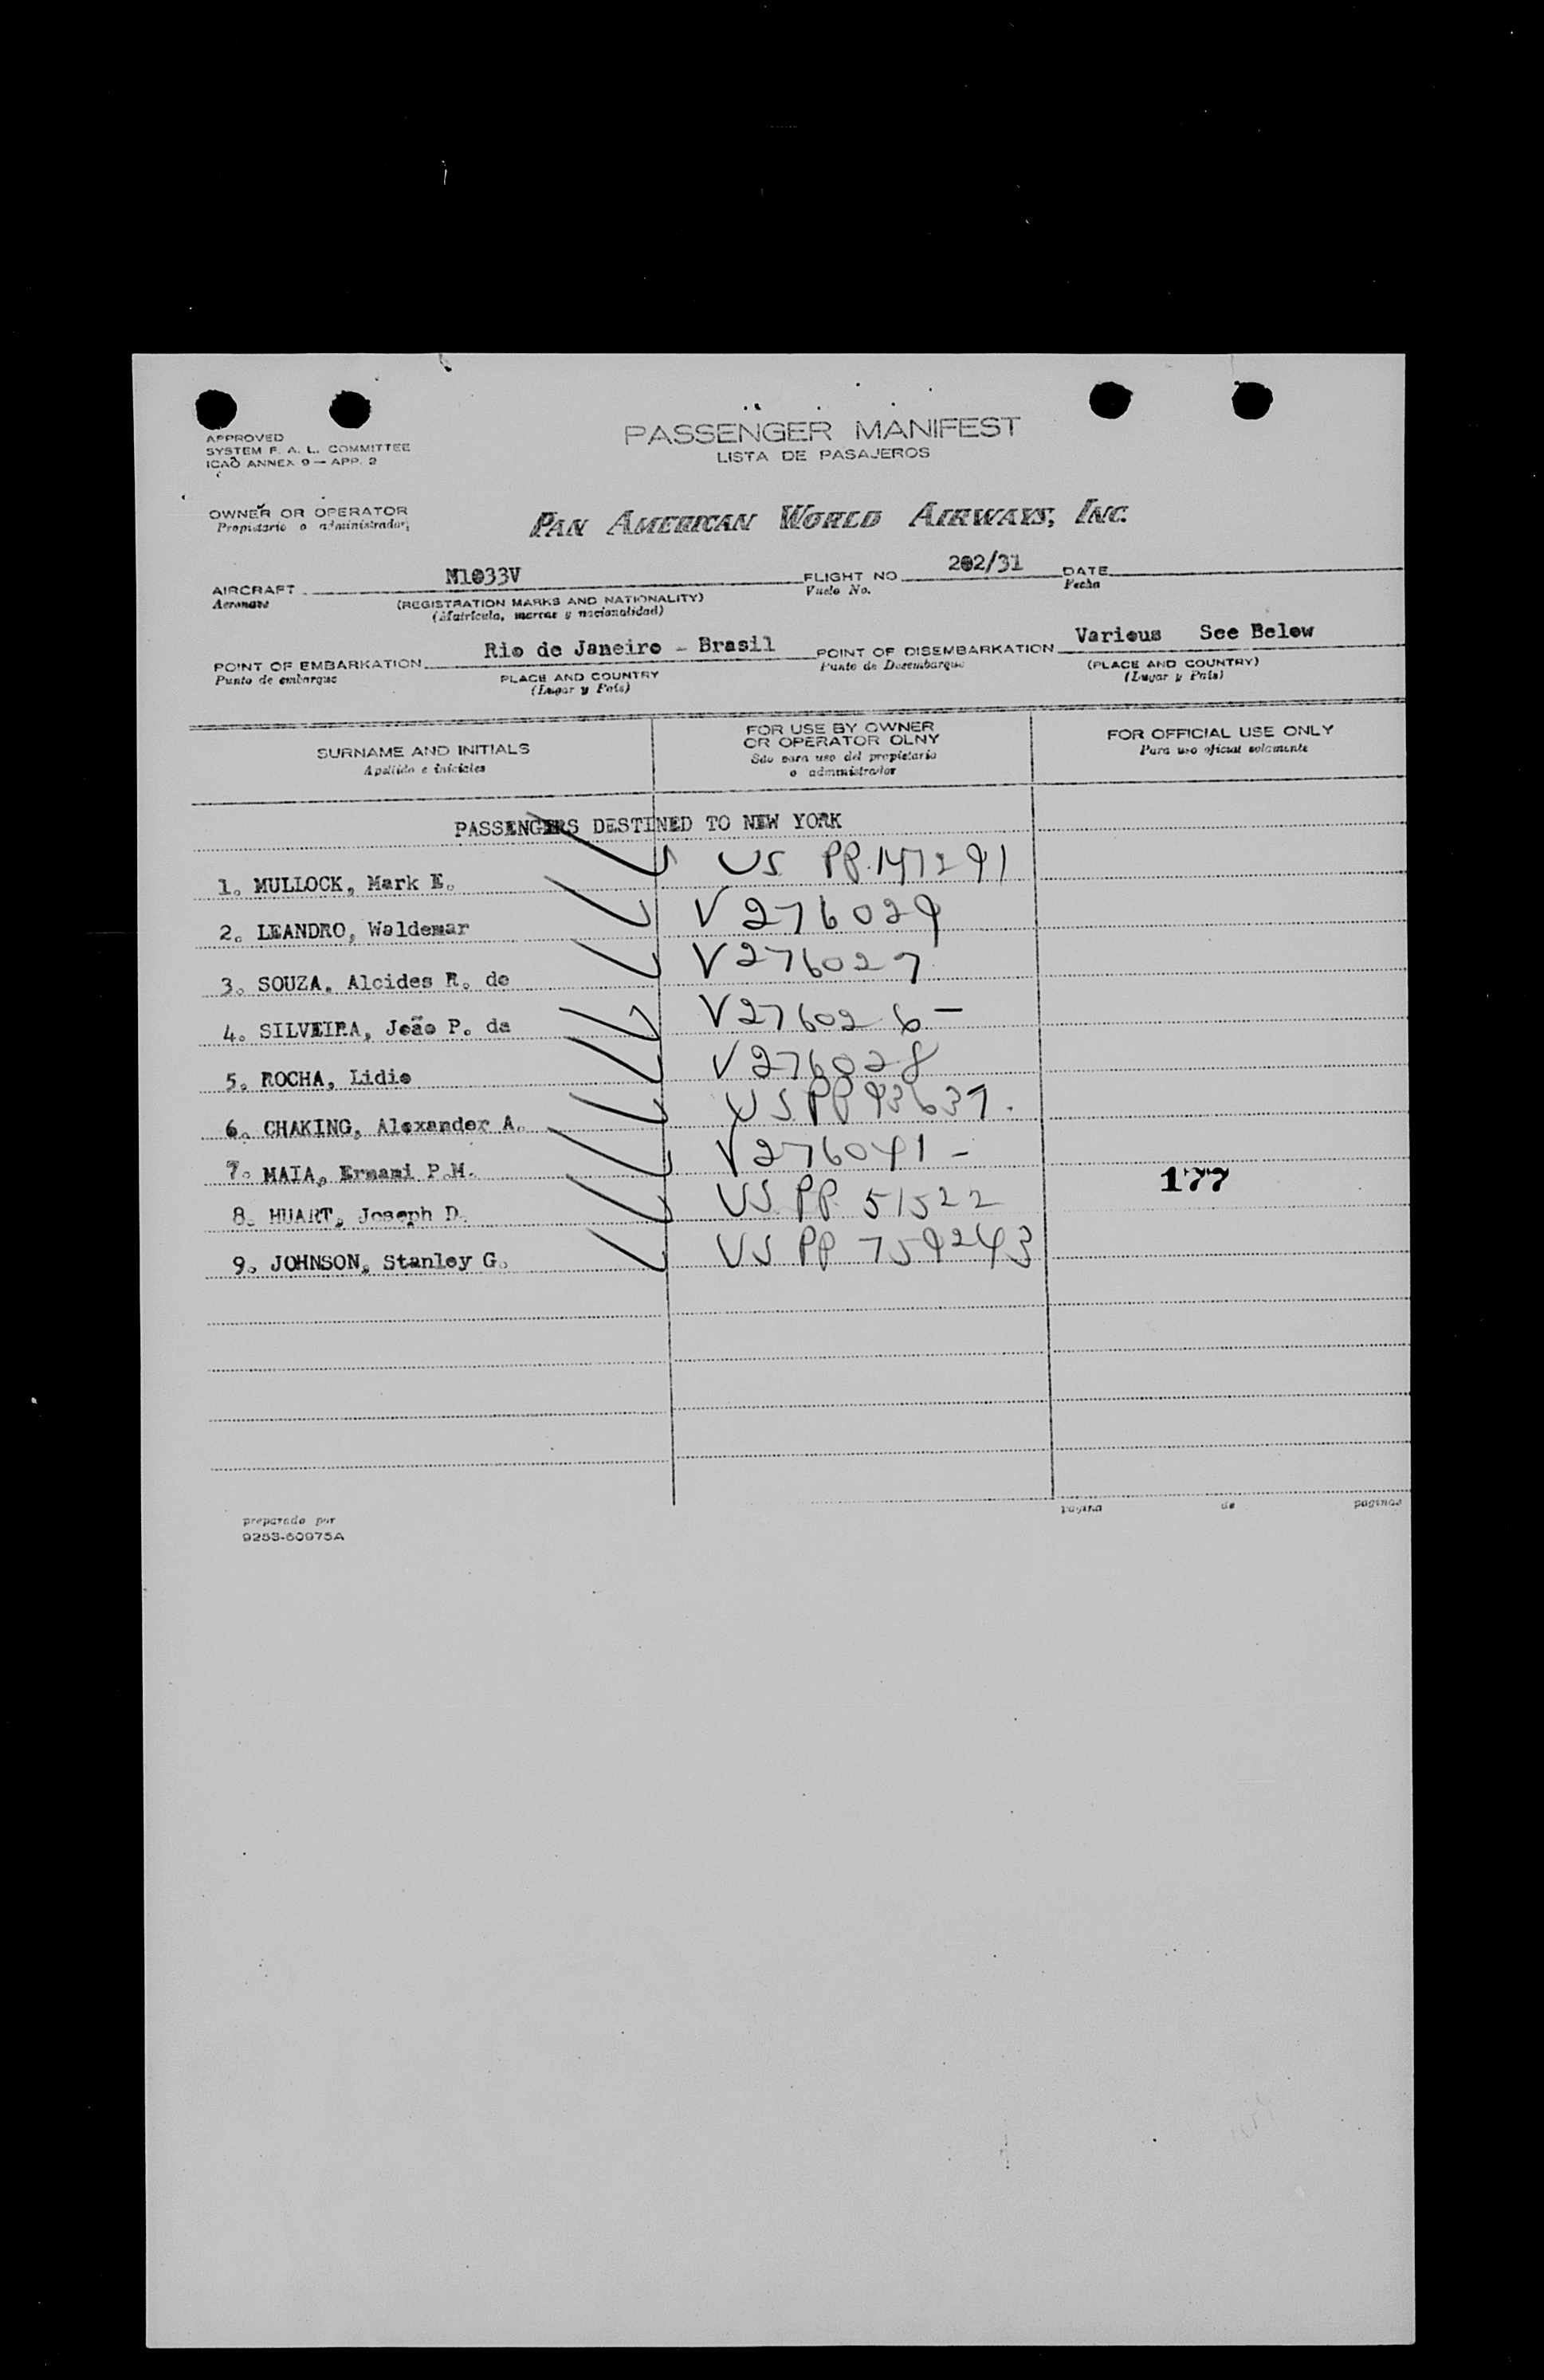 PASSENGER MANIFEST
LISTA DE PASAJEROS
APPROVED
SYSTEM F. A. L. COMMITTEE
ICAO ANNEX 9 — APP. 2
OWNER OR OPERATOR
Propietario o administrador
PAN AMERICAN WORLD AIRWAYS, INC.
AIRCRAFT N1033V FLIGHT NO 202/31 DATE
Aeronave (REGISTRATION MARKS AND NATIONALITY) Vuelo No. Fecha
(Matrícula, marcas y nacionalidad)
POINT OF EMBARKATION Rio de Janeiro - Brasil POINT OF DISEMBARKATION Various See Below
Punto de embarque PLACE AND COUNTRY Punto de Desembarque (PLACE AND COUNTRY)
(Lugar y País) (Lugar y País)
SURNAME AND INITIALS
Apellido e iniciales
FOR USE BY OWNER
OR OPERATOR OLNY
Sólo para uso del propietario
o administrador
FOR OFFICIAL USE ONLY
Para uso oficial solamente
PASSENGERS DESTINED TO NEW YORK
1. MULLOCK, Mark E. US PP. 147291
2. LEANDRO, Waldemar V276029
3. SOUZA, Alcides R. de V276027
4. SILVEIRA, João P. da V276026 —
5. ROCHA, Lidio V276028
6. CHAKING, Alexander A. US PP 93637.
7. MAIA, Ernani P.H. V276041 —
177
8. HUART, Joseph D. US PP 51522
9. JOHNSON, Stanley G. US PP 759243
página de páginas
preparado por
9253-60975A